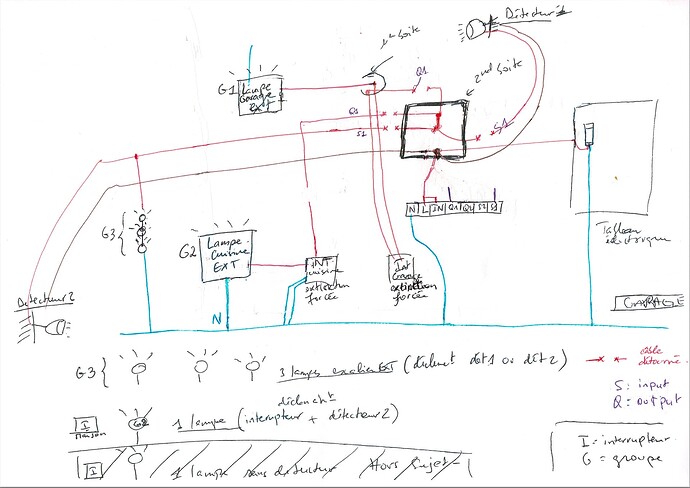 1er boite
Détecteur 1
G1
Lampe
Garage
Ext
Q1
2nd boite
Q2
S1
S1
G3
G2
Lampe
Cuisine
EXT
INT
cuisine
extinction
forcée
INT
Garage
extinction
forcée
N L IN Q1 Q2 S2 S1
Tableau
électrique
Détecteur 2
N
GARAGE
G3 3 lampes escalier EXT (déclenct dét 1 ou dét 2)
déclencht
câble
détourné
S: input
Q: output
I
Maison
G2
1 lampe (interrupteur + détecteur 2)
I 1 lampe sans detecteur Hors Sujet
I = interrupteur
G = groupe